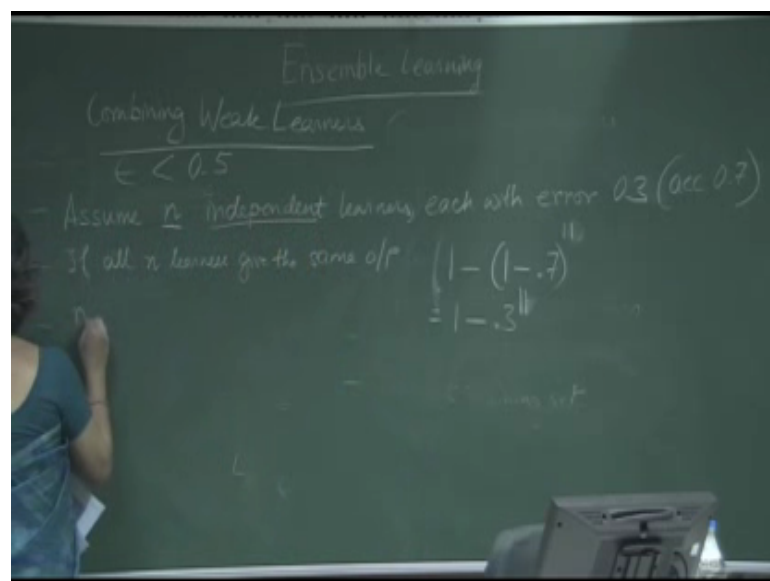 Ensemble Learning
Combining Weak Learners
ϵ < 0.5
- Assume n independent learners, each with error 0.3 (acc 0.7)
- If all n learners give the same o/p (1 - (1 - .7)^11
= 1 - .3^11
- n